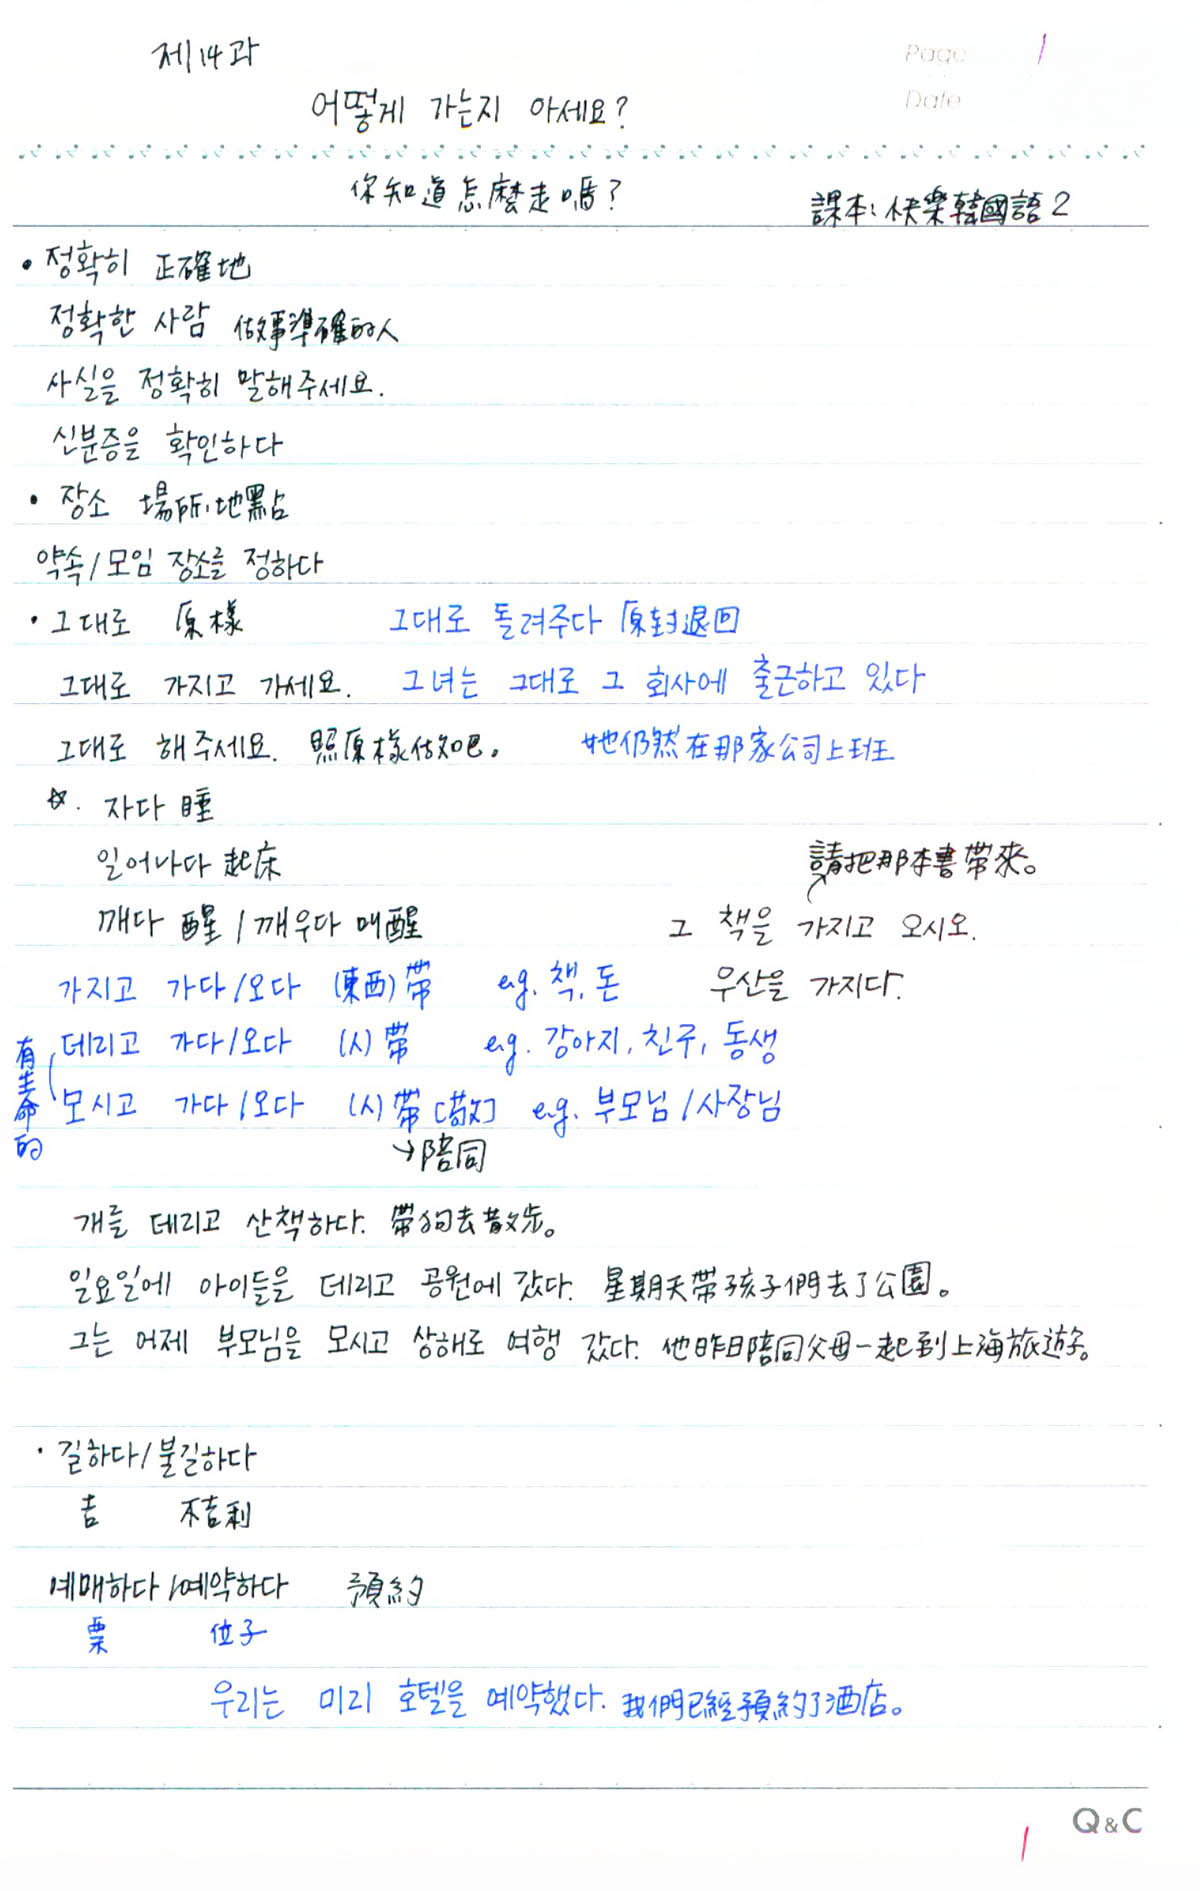 제14과
Page 1
어떻게 가는지 아세요?
Date
你知道怎麼走嗎?
課本: 快樂韓國語2
• 정확히 正確地
정확한 사람 做事準確的人
사실을 정확히 말해주세요.
신분증을 확인하다
• 장소 場所,地點
약속/모임 장소를 정하다
• 그대로 原樣 그대로 돌려주다 原封退回
그대로 가지고 가세요. 그녀는 그대로 그 회사에 출근하고 있다
그대로 해주세요. 照原樣做吧。 她仍然在那家公司上班
☆. 자다 睡
일어나다 起床 請把那本書帶來。
깨다 醒 / 깨우다 叫醒 그 책을 가지고 오시오.
가지고 가다/오다 (東西)帶 e.g. 책, 돈 우산을 가지다.
有生命的
데리고 가다/오다 (人)帶 e.g. 강아지, 친구, 동생
모시고 가다/오다 (人)帶[敬] e.g. 부모님/사장님
→陪同
개를 데리고 산책하다. 帶狗去散步。
일요일에 아이들을 데리고 공원에 갔다. 星期天帶孩子們去了公園。
그는 어제 부모님을 모시고 상해로 여행 갔다. 他昨日陪同父母一起到上海旅遊。
• 길하다/불길하다
吉 不吉利
예매하다/예약하다 預約
票 位子
우리는 미리 호텔을 예약했다. 我們已經預約了酒店。
Q&C
1